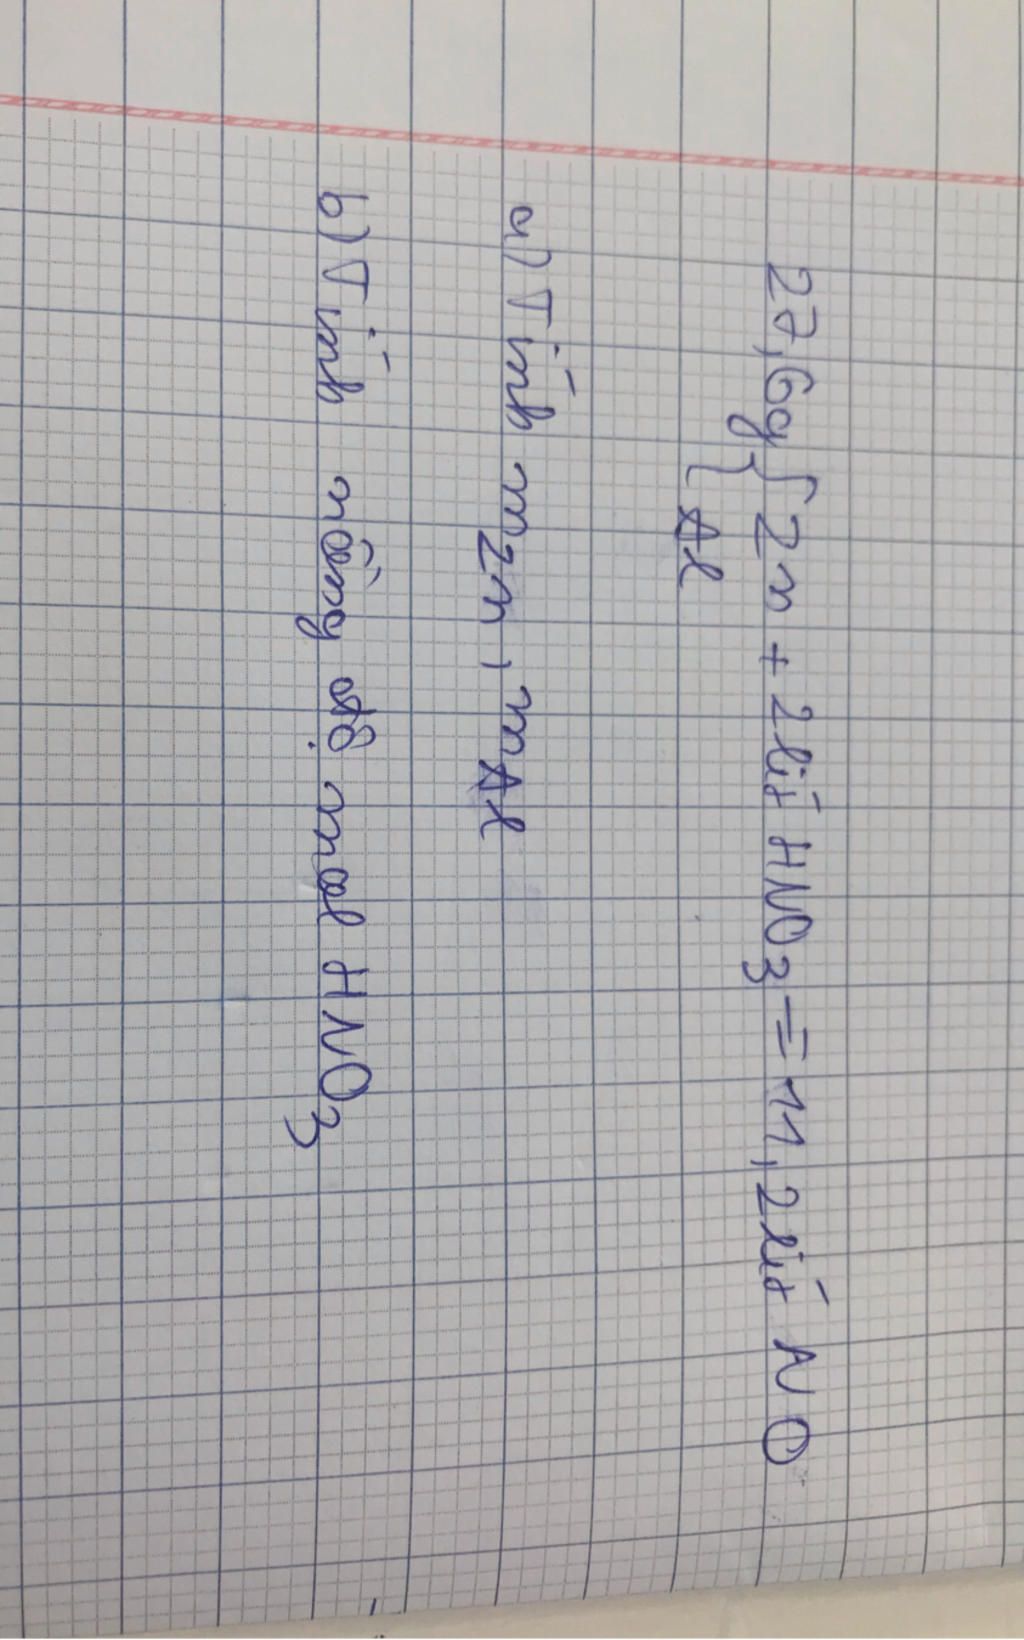 27,6g { Zn + 2lít HNO3 = 11,2lít NO
Al
a) Tính mZn, mAl
b) Tính nồng độ mol HNO3